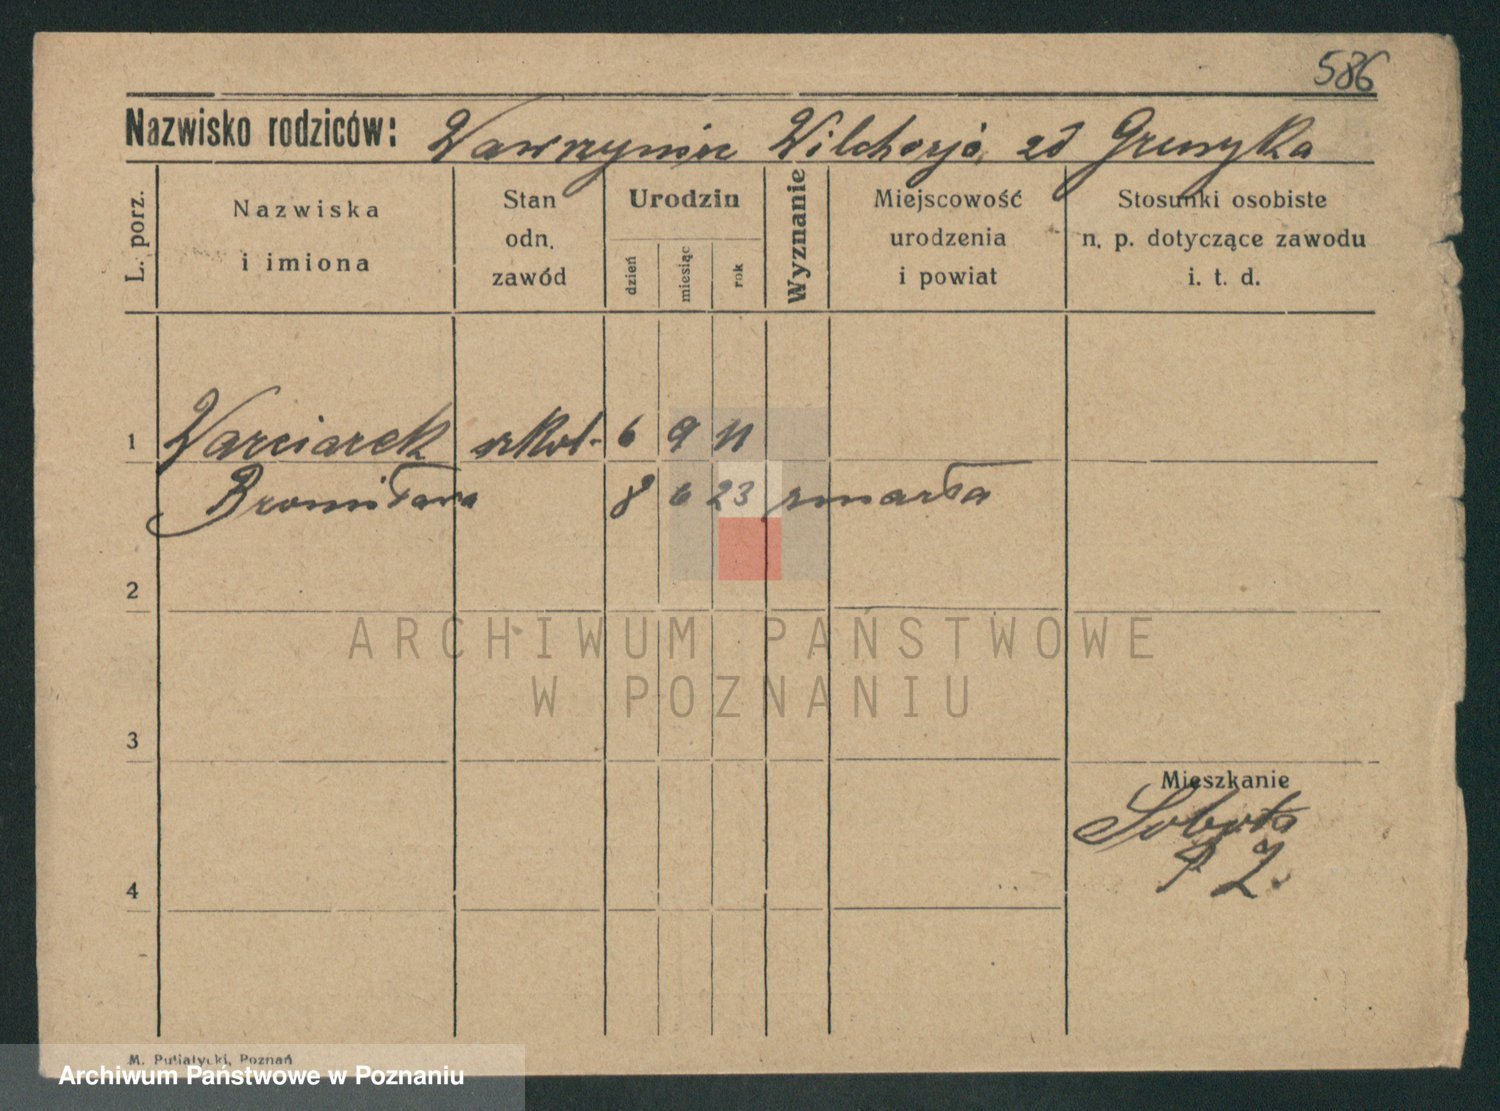 586
Nazwisko rodziców: Wawrzynie Wilchorja zd Gruszka
L. porz.
Nazwiska
i imiona
Stan
odn.
zawód
Urodzin
dzień
miesiąc
rok
Wyznanie
Miejscowość
urodzenia
i powiat
Stosunki osobiste
n. p. dotyczące zawodu
i. t. d.
1 Warciarek szkol. 6 9 11
Bronisława 8 6 23 zmarła
2
ARCHIWUM PAŃSTWOWE
W POZNANIU
3
Mieszkanie
Sobota
4
M. Putiatycki, Poznań
Archiwum Państwowe w Poznaniu